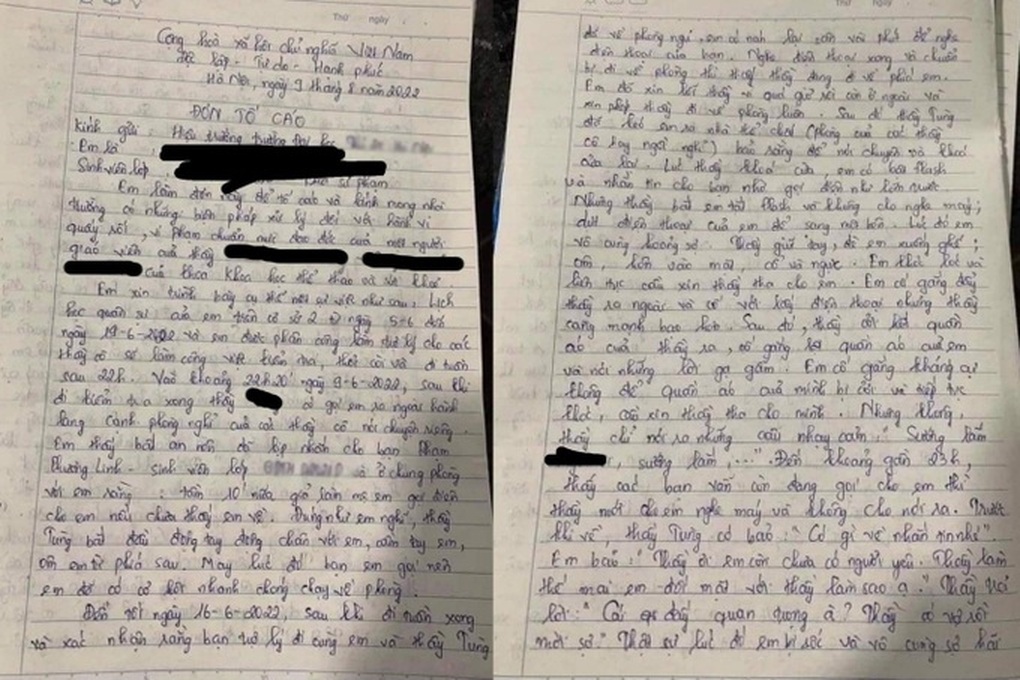 Thứ ngày
Cộng hoà xã hội chủ nghĩa Việt Nam
Độc lập - Tự do - Hạnh phúc
Hà Nội, ngày 9 tháng 8 năm 2022
ĐƠN TỐ CÁO
Kính gửi: Hiệu trưởng trường Đại học
Em là
Sinh viên lớp sư phạm
Em làm đơn này để tố cáo và kính mong nhà
trường có những biện pháp xử lý đối với hành vi
quấy rối, vi phạm chuẩn mực đạo đức của một người
giáo viên của thầy
của khoa Khoa học thể thao và sức khoẻ.
Em xin trình bày cụ thể nội sự việc như sau, Lịch
học quân sự của em trên cơ sở 2 từ ngày 5-6 đến
ngày 19-6-2022 và em được phân công làm trợ lý cho các
thầy cô sẽ làm công việc kiểm tra, thổi còi và đi tuần
sau 22h. Vào khoảng 22h20' ngày 9-6-2022, sau khi
đi kiểm tra xong thầy có gọi em ra ngoài hành
lang cạnh phòng nghỉ của các thầy cô nói chuyện riêng.
Em thấy bất an nên đã kịp nhắn cho bạn Phạm
Phương Linh - sinh viên lớp và ở chung phòng
với em rằng: tầm 10' nữa giả làm mẹ em gọi điện
cho em nếu chưa thấy em về. Đúng như em nghĩ, thầy
Tùng bắt đầu động tay động chân với em, cầm tay em,
ôm em từ phía sau. May lúc đó bạn em gọi nên
em đã có cớ kết nhanh chóng chạy về phòng.
Đến tối ngày 16-6-2022, sau khi đi tuần xong
và xác nhận rằng bạn trợ lý đi cùng em và thầy Tùng
Thứ ngày
đã về phòng ngủ, em có nán lại vài phút để nghe
điện thoại của bạn. Nghe điện thoại xong và chuẩn
bị đi về phòng thì thấy thầy đang đi về phía em.
Em đã xin lỗi thầy vì quá giờ rồi còn ở ngoài và
xin phép thầy đi về phòng luôn. Sau đó thầy Tùng
đã kéo em ra nhà thể chất (phòng của các thầy
cô hay ngồi nghỉ) bảo rằng để nói chuyện và khoá
cửa lại. Lúc thầy khoá cửa, em có bật flash
và nhắn tin cho bạn nhờ gọi điện như lần trước.
Nhưng thầy bắt em tắt flash và không cho nghe máy;
dứt điện thoại của em để sang một bên. Lúc đó em
vô cùng hoảng sợ. Thầy giữ tay, đè em xuống ghế;
ôm, hôn vào môi, cổ và ngực. Em khóc lóc và
liên tục cầu xin thầy tha cho em. Em cố gắng đẩy
thầy ra ngoài và cố với lấy điện thoại nhưng thầy
càng mạnh bạo hơn. Sau đó, thầy cởi hết quần
áo của thầy ra, cố gắng quần áo của em
và nói những lời gạ gẫm. Em cố gắng kháng cự
không để quần áo của mình bị cởi và tiếp tục
khóc, cầu xin thầy tha cho mình. Nhưng không,
thầy chỉ nói ra những câu nhạy cảm: "Sướng lắm
, sướng lắm, ...". Đến khoảng gần 23h,
thấy các bạn vẫn còn đang gọi cho em thì
thầy mới cho em nghe máy và không cho nói ra. Trước
khi về, thầy Tùng có bảo: "Có gì về nhắn tin nhé".
Em bảo: "Thầy ơi em còn chưa có người yêu. Thầy làm
thế mai em đối mặt với thầy làm sao ạ." Thầy trả
lời: "Cái gì đấy quan trọng à? Thầy có vợ rồi
mới sợ." Thật sự lúc đó em bị sốc và vô cùng sợ hãi